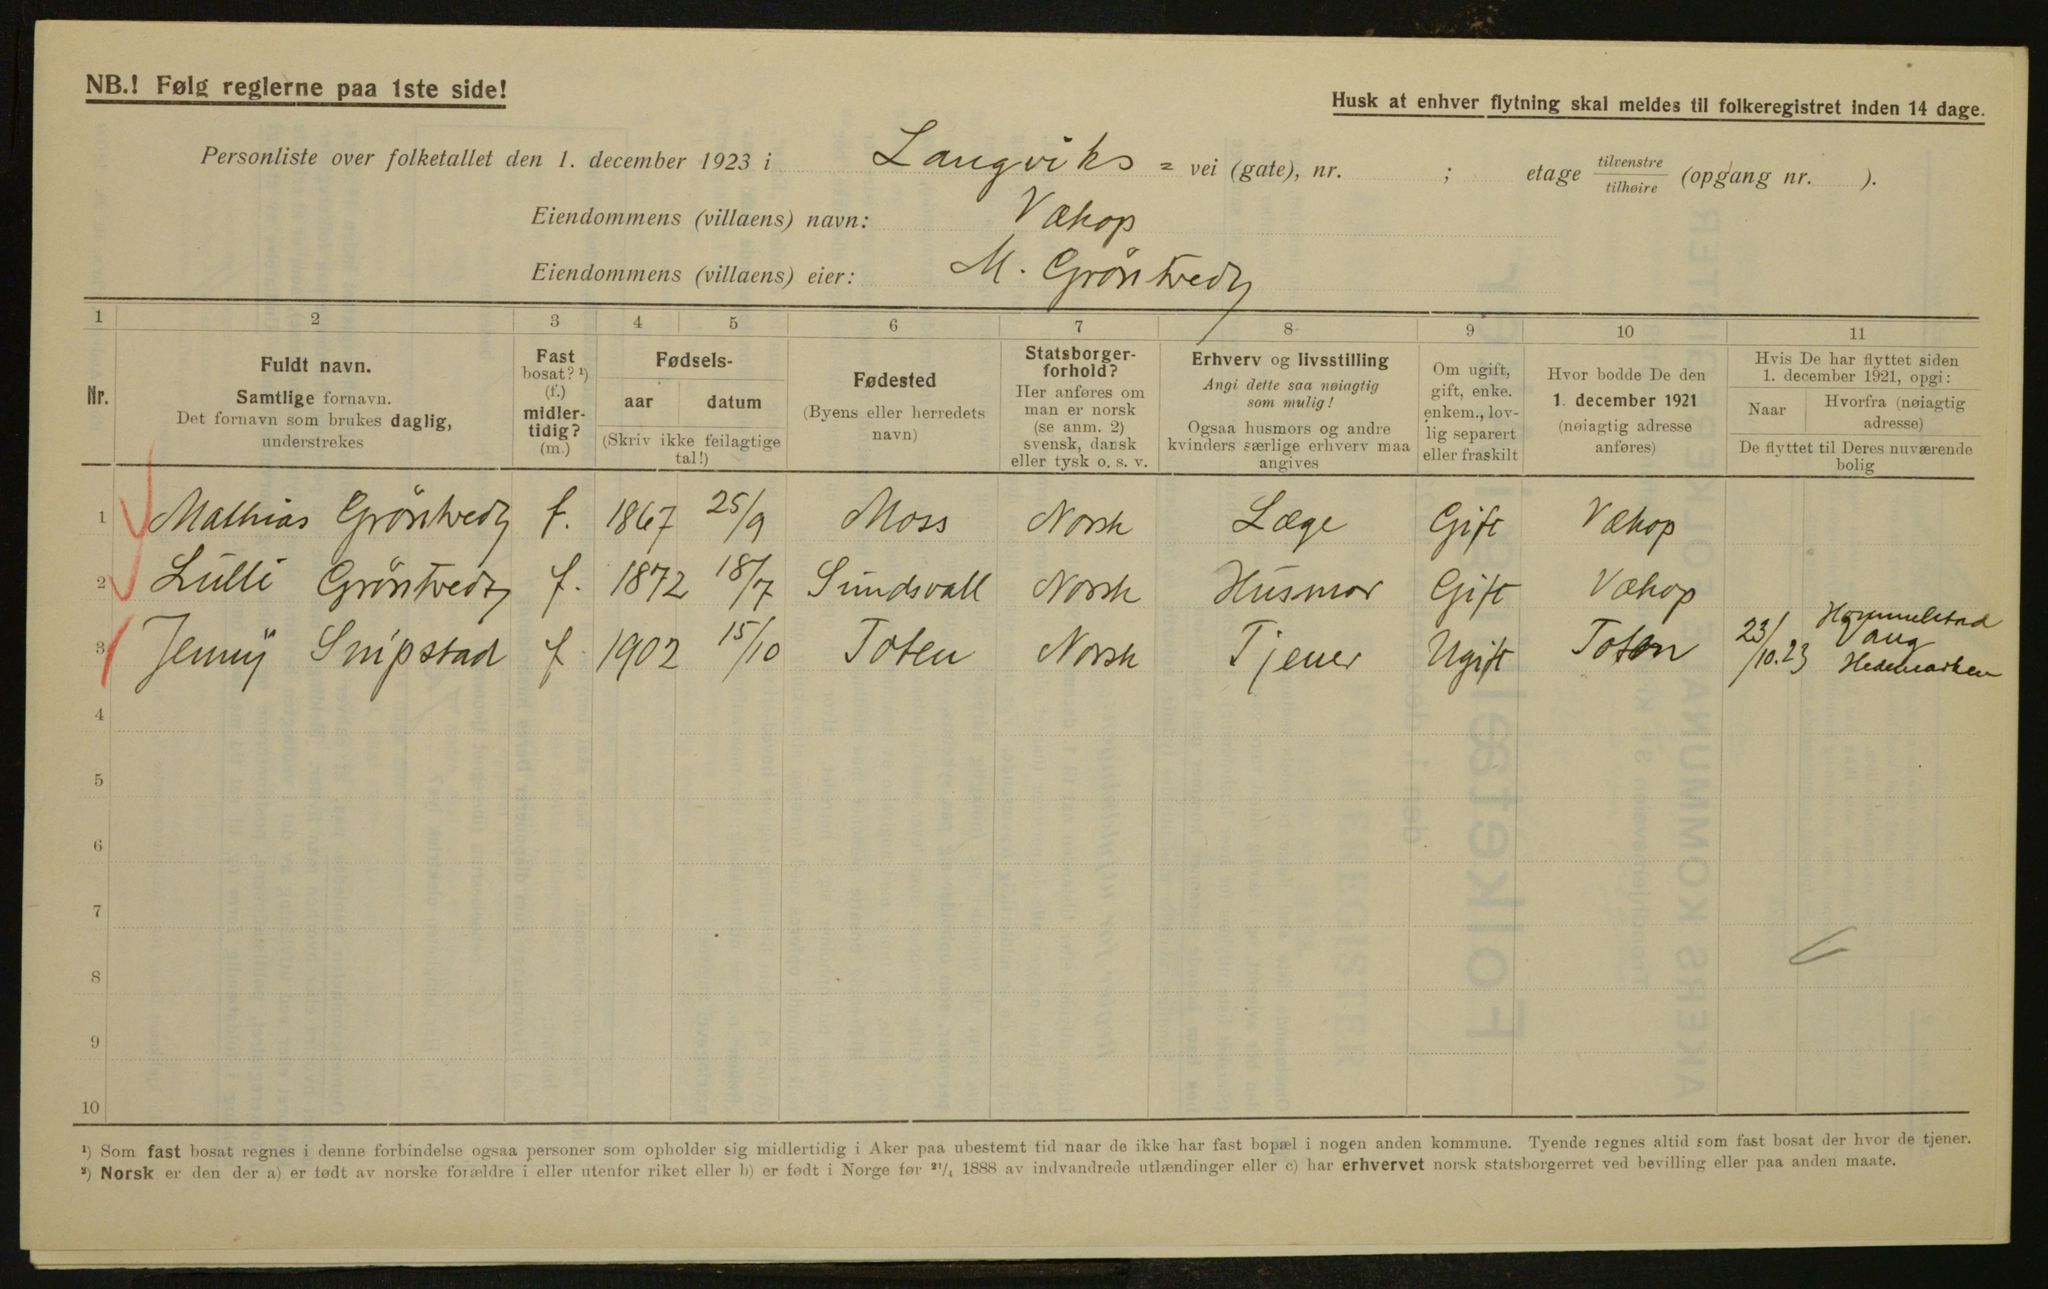 NB.! Følg reglerne paa 1ste side!
Husk at enhver flytning skal meldes til folkeregistret inden 14 dage.
Personliste over folketallet den 1. december 1923 i Langviks = vei (gate), nr. ; etage tilvenstre/tilhøire (opgang nr. ).
Eiendommens (villaens) navn: Vækop
Eiendommens (villaens) eier: M. Gröntvedt
1 2 3 4 5 6 7 8 9 10 11
Nr.
Fuldt navn.
Samtlige fornavn.
Det fornavn som brukes daglig,
understrekes
Fast
bosat? ¹)
(f.)
midler-
tidig?
(m.)
Fødsels-
aar datum
(Skriv ikke feilagtige
tal!)
Fødested
(Byens eller herredets
navn)
Statsborger-
forhold?
Her anføres om
man er norsk
(se anm. 2)
svensk, dansk
eller tysk o. s. v.
Erhverv og livsstilling
Angi dette saa nøiagtig
som mulig!
Ogsaa husmors og andre
kvinders særlige erhverv maa
angives
Om ugift,
gift, enke.
enkem., lov-
lig separert
eller fraskilt
Hvor bodde De den
1. december 1921
(nøiagtig adresse
anføres)
Hvis De har flyttet siden
1. december 1921, opgi:
Naar
Hvorfra (nøiagtig
adresse)
De flyttet til Deres nuværende
bolig
1 Mathias Gröntvedt f. 1867 25/9 Moss Norsk Læge Gift Vækop
2 Lulli Gröntvedt f. 1872 18/7 Sundsvall Norsk Husmor Gift Vækop
3 Jenny Snipstad f 1902 15/10 Toten Norsk Tjener Ugift Toten 23/10.23 Hommelstad
Vang
Hedemarken
4
5
6
7
8
9
10
¹) Som fast bosat regnes i denne forbindelse ogsaa personer som opholder sig midlertidig i Aker paa ubestemt tid naar de ikke har fast bopæl i nogen anden kommune. Tyende regnes altid som fast bosat der hvor de tjener.
²) Norsk er den der a) er født av norske forældre i eller utenfor riket eller b) er født i Norge før ²¹/₄ 1888 av indvandrede utlændinger eller c) har erhvervet norsk statsborgerret ved bevilling eller paa anden maate.